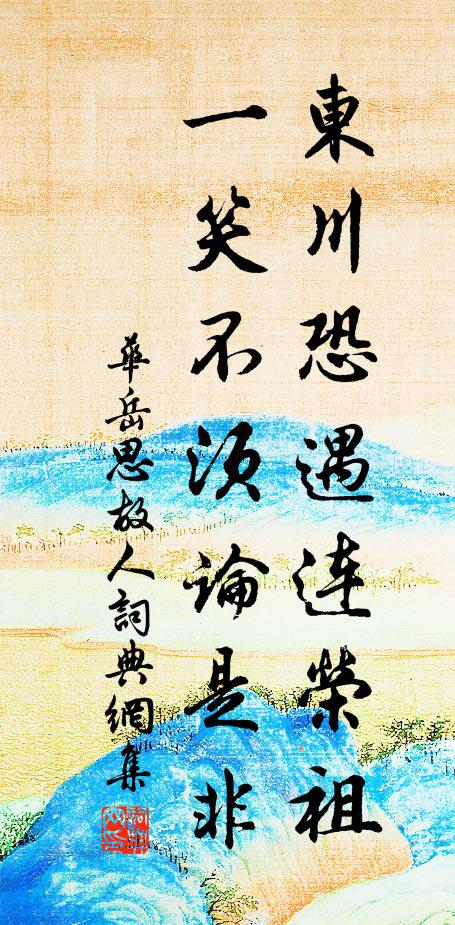 東川恐遇連榮祖
一笑不須論是非
華岳思故人詞典網集